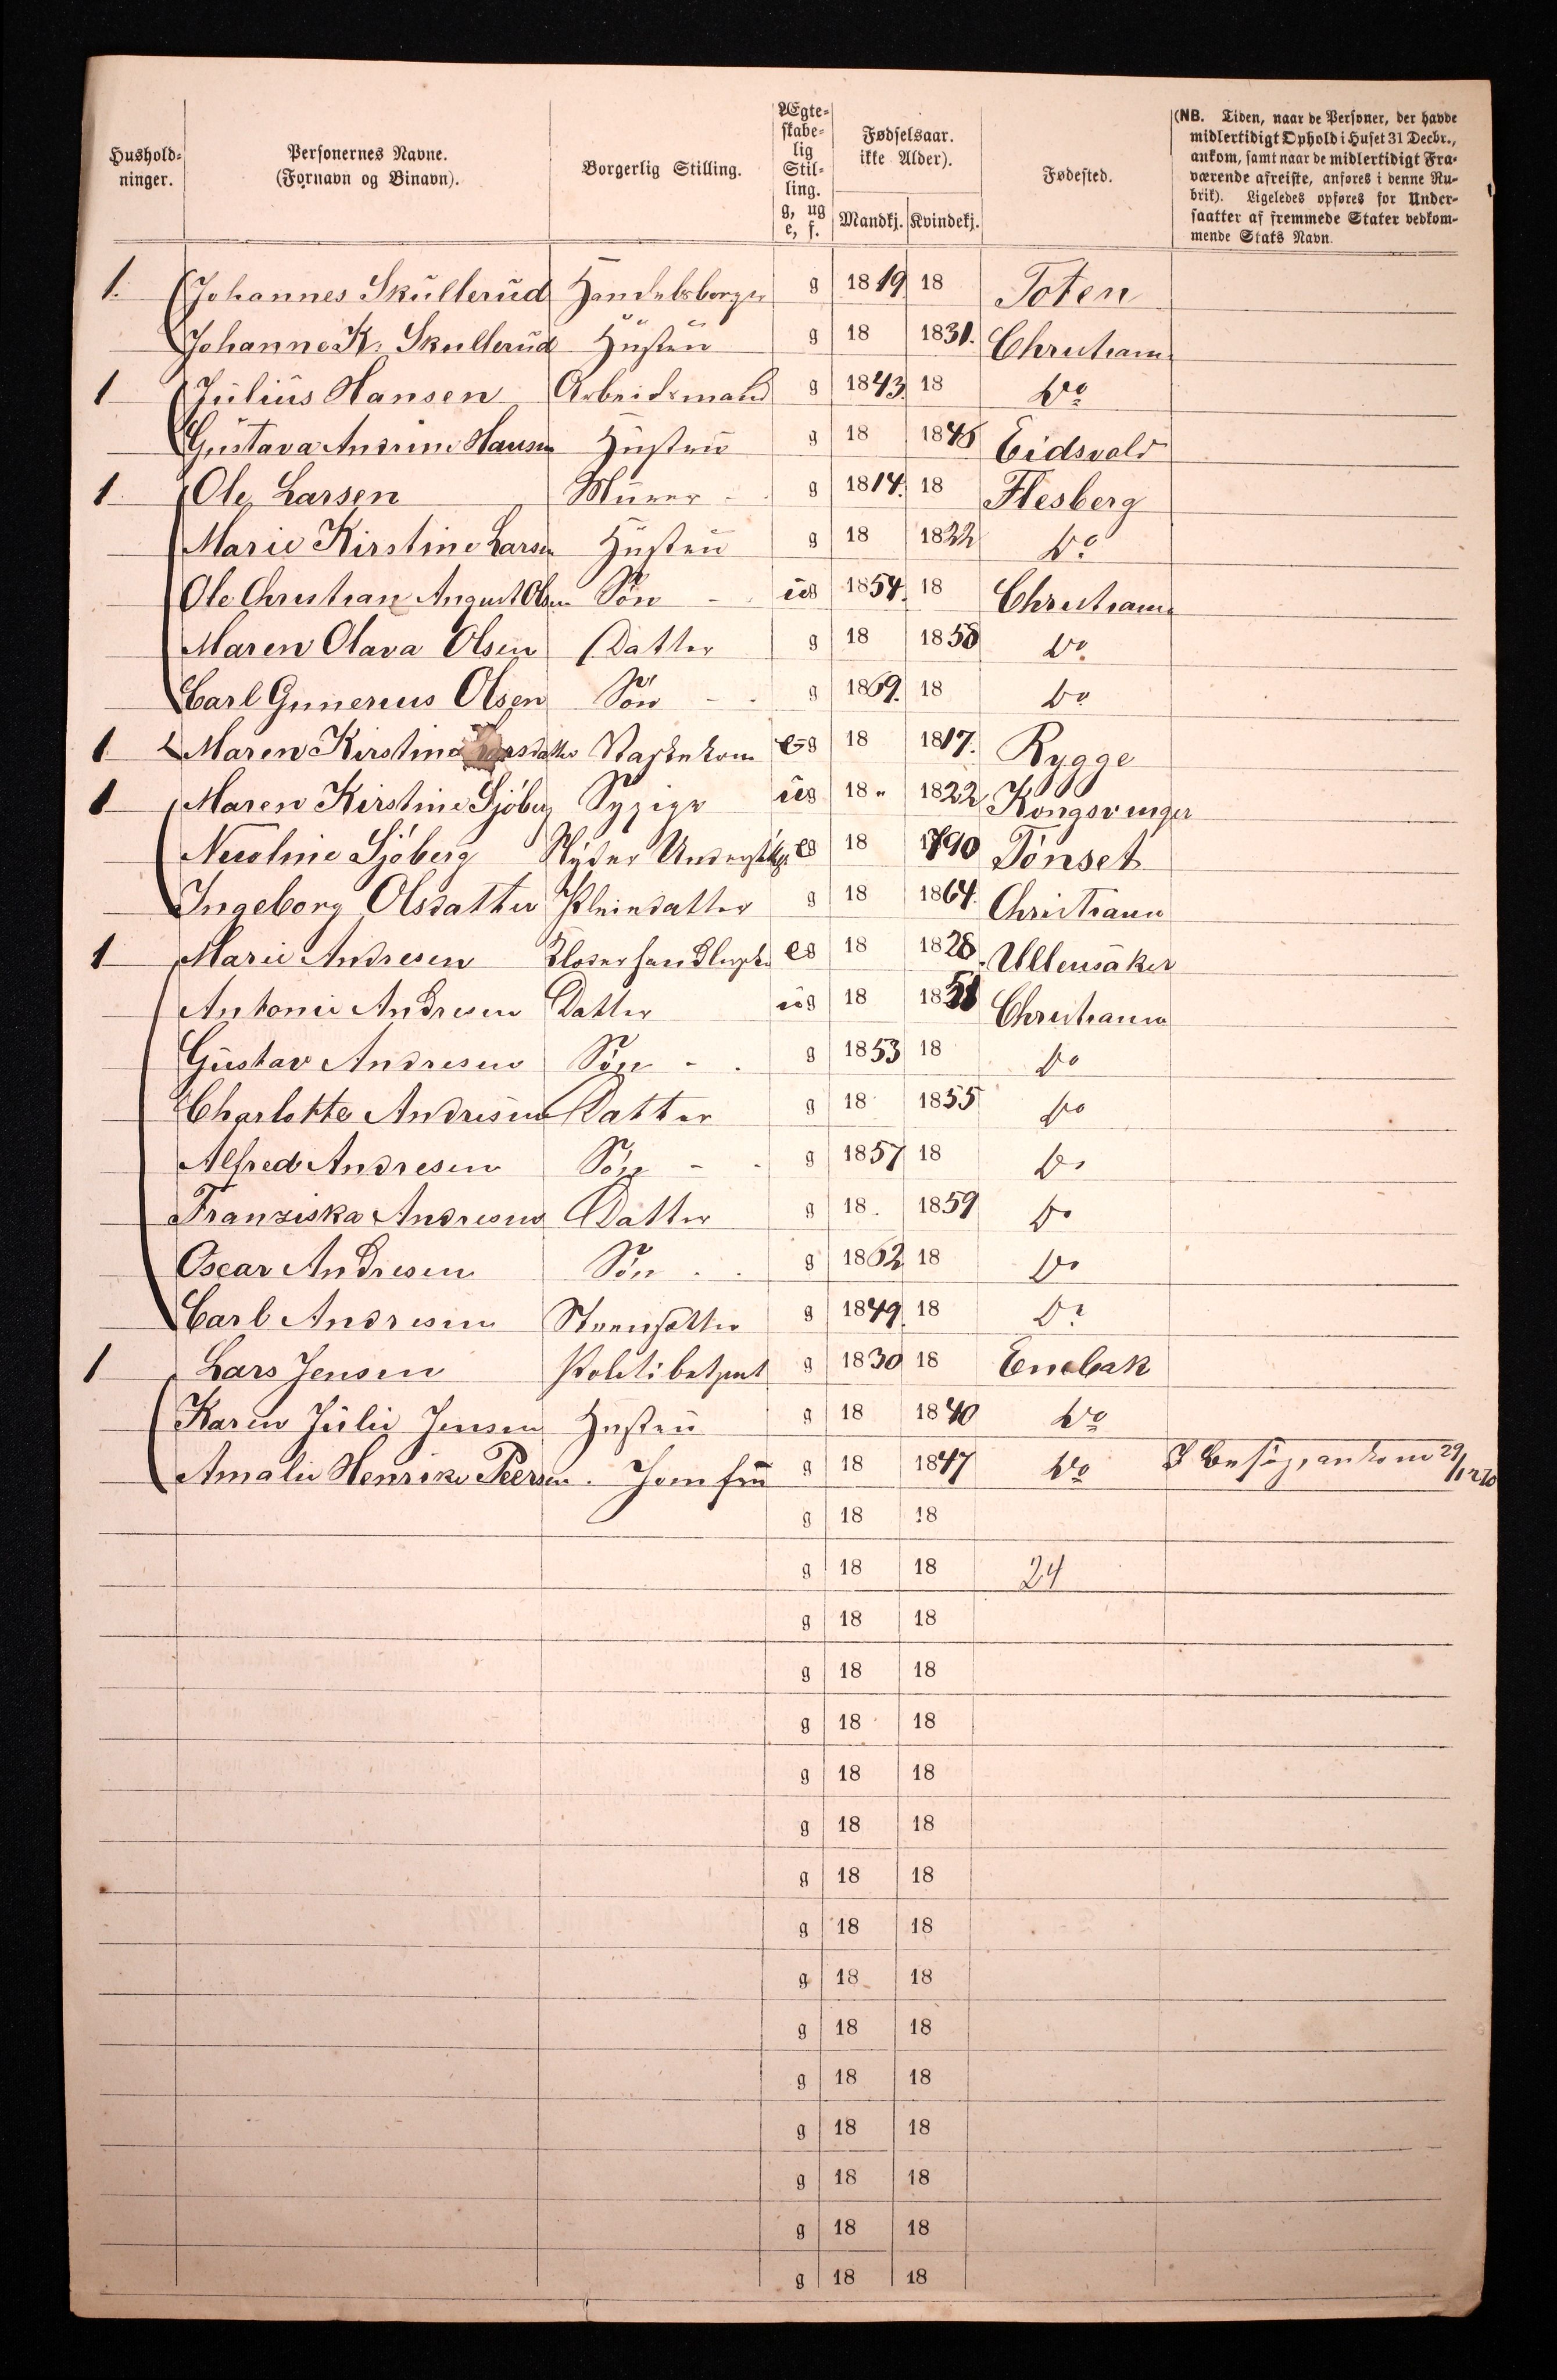 Hushold-
ninger.
Personernes Navne.
(Fornavn og Binavn).
Borgerlig Stilling.
Ægte-
skabe-
lig
Stil-
ling.
g, ug
e, f.
Fødselsaar.
ikke Alder).
Mandkj. Kvindekj.
Fødested.
(NB. Tiden, naar de Personer, der havde
midlertidigt Ophold i Huset 31 Decbr.,
ankom, samt naar de midlertidigt Fra-
værende afreiste, anføres i denne Ru-
brik). Ligeledes opføres for Under-
saatter af fremmede Stater vedkom-
mende Stats Navn.
1. Johannes Skullerud Handelsborger g 1819 18 Toten
Johanne K. Skullerud Hustru g 18 1831. Christiania
1 Julius Hansen Arbeidsmand g 1843 18 Do
Gustava Andrine Hansen Hustru g 18 1845 Eidsvold
1 Ole Larsen Murer g 1814. 18 Flesberg
Marie Kirstine Larsen Hustru g 18 1822 Do
Ole Christian August Olsen Søn ug 1854. 18 Christiania
Maren Olava Olsen Datter g 18 1858 Do
Carl Gunerius Olsen Søn g 1869. 18 Do
1 Maren Kirstine Vaskekone g 18 1817. Rygge
1 Maren Kirstine Sjöberg Sypige ug 18 " 1822 Kongsvinger
Nicoline Sjöberg Nyder eg 18 1790 Tönset
Ingeborg Olsdatter Pleiedatter g 18 1864. Christiania
1 Marie Andresen eg 18 1828. Ullensaker
Antonie Andresen Datter ug 18 1851 Christiania
Gustav Andresen Søn g 1853 18 Do
Charlotte Andresen Datter g 18 1855 Do
Alfred Andresen Søn g 1857 18 Do
Franziska Andresen Datter g 18. 1859 Do
Oscar Andresen Søn g 1862 18 Do
Carl Andresen g 1849. 18 Do
1 Lars Jensen Politibetjent g 1830 18 Enebak
Karen Julie Jensen Hustru g 18 1840 Do
Amalie Henrike Peersen. Jomfru g 18 1847 Do I Besøg, ankom 29/12 70
g 18 18
g 18 18 24
g 18 18
g 18 18
g 18 18
g 18 18
g 18 18
g 18 18
g 18 18
g 18 18
g 18 18
g 18 18
g 18 18
g 18 18
g 18 18
g 18 18